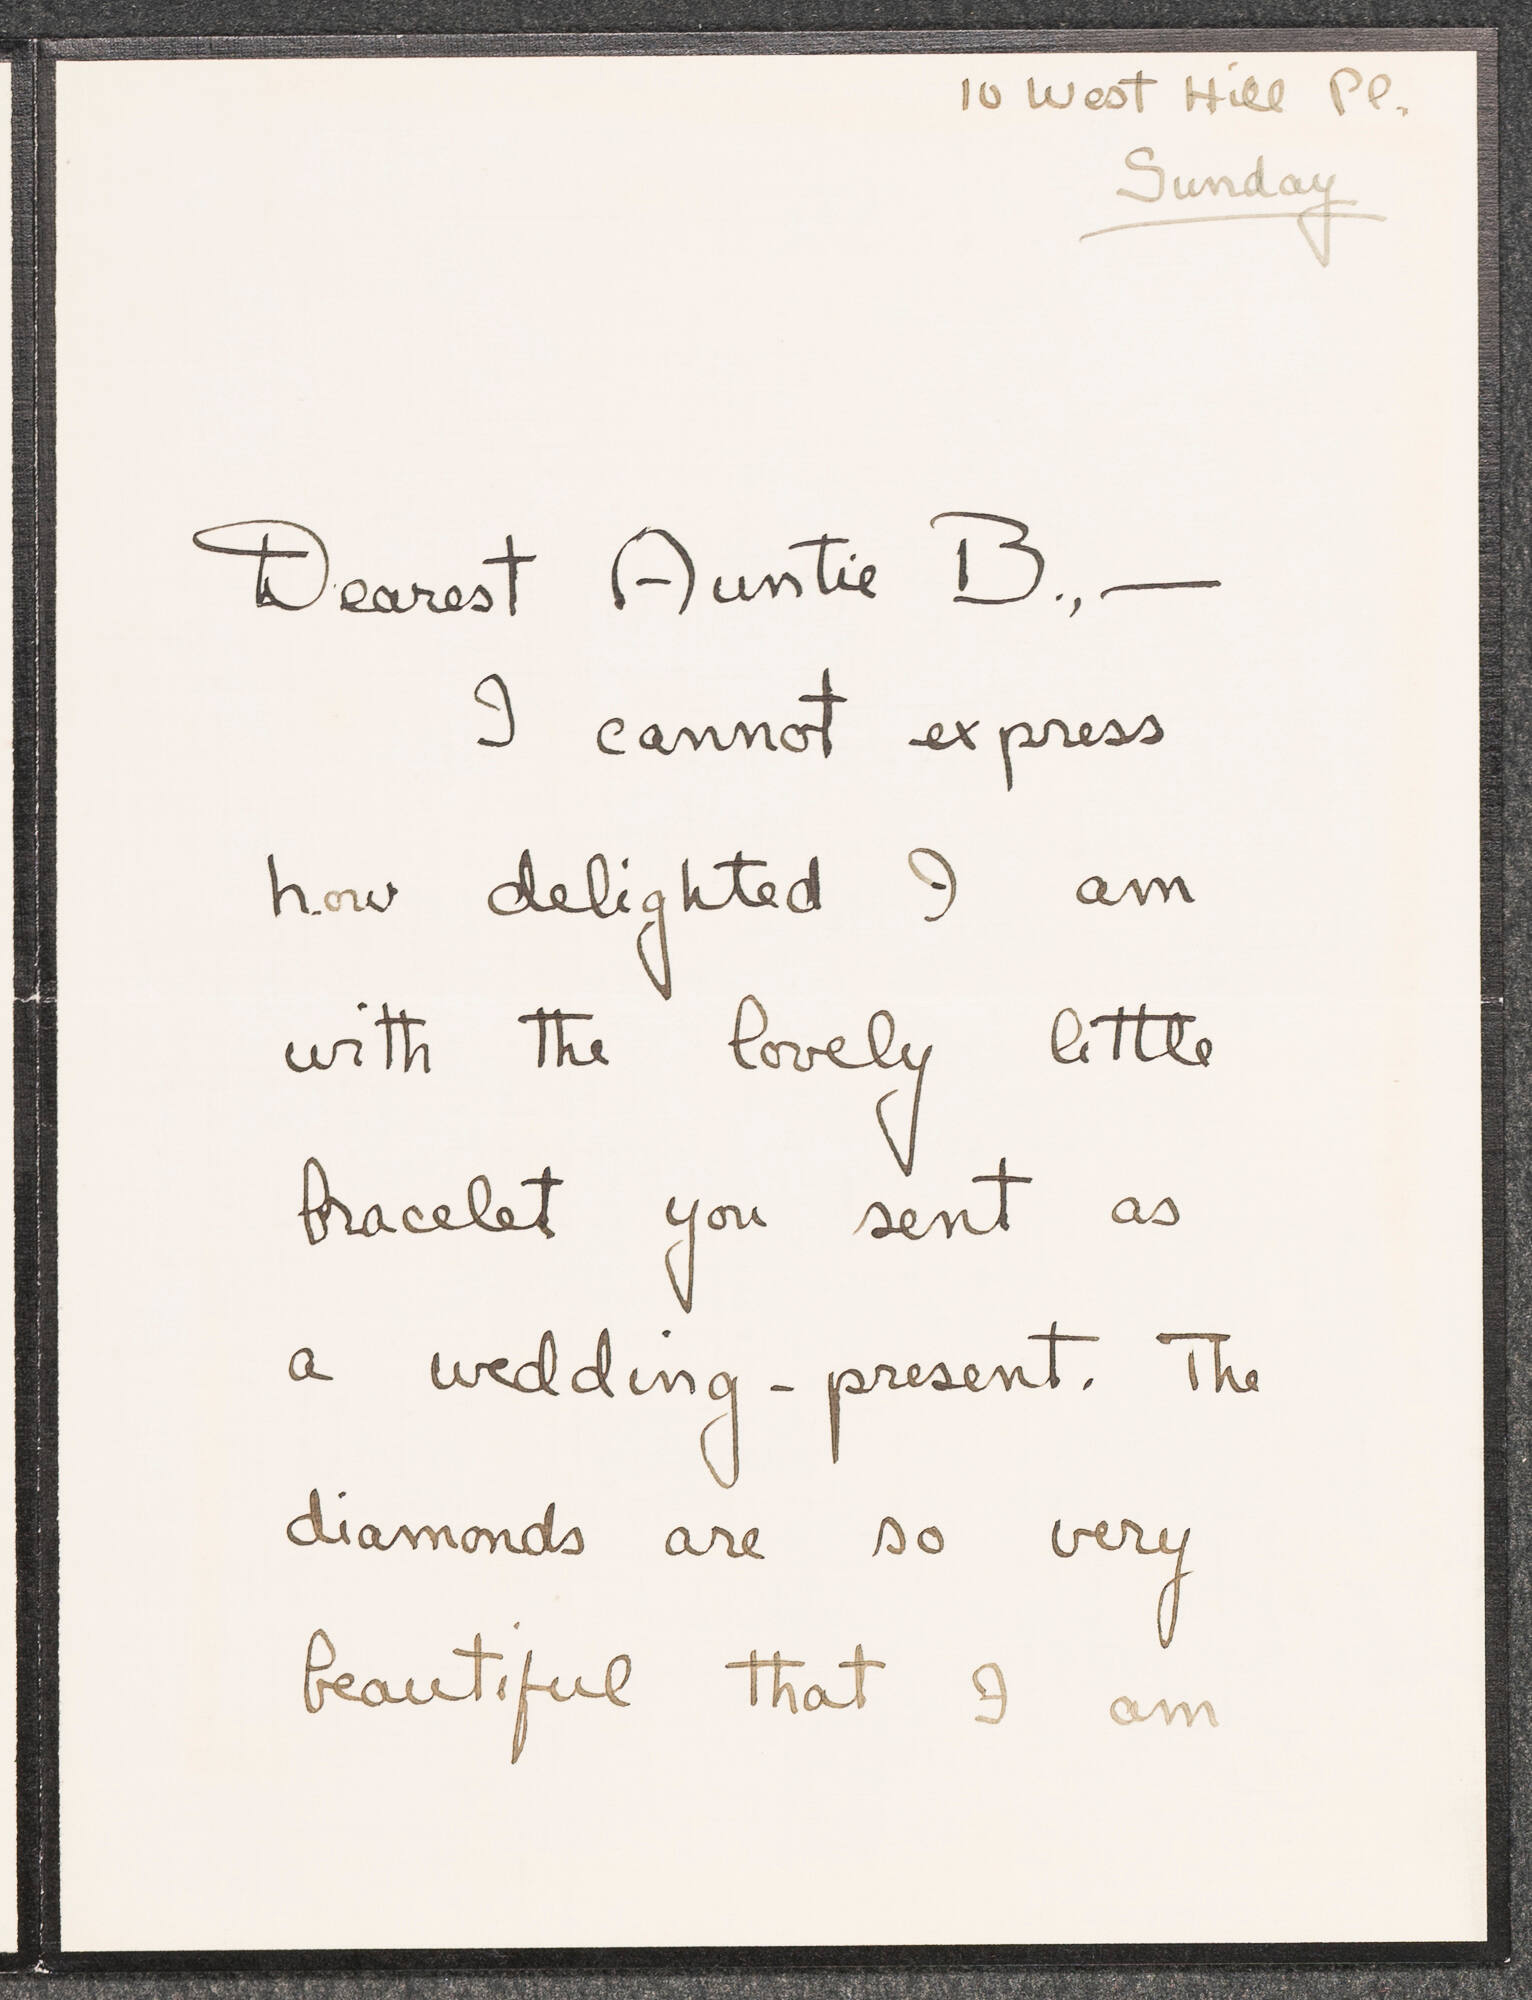 10 West Hill Pl.
Sunday
Dearest Auntie B., —
I cannot express
how delighted I am
with the lovely little
bracelet you sent as
a wedding-present. The
diamonds are so very
beautiful that I am